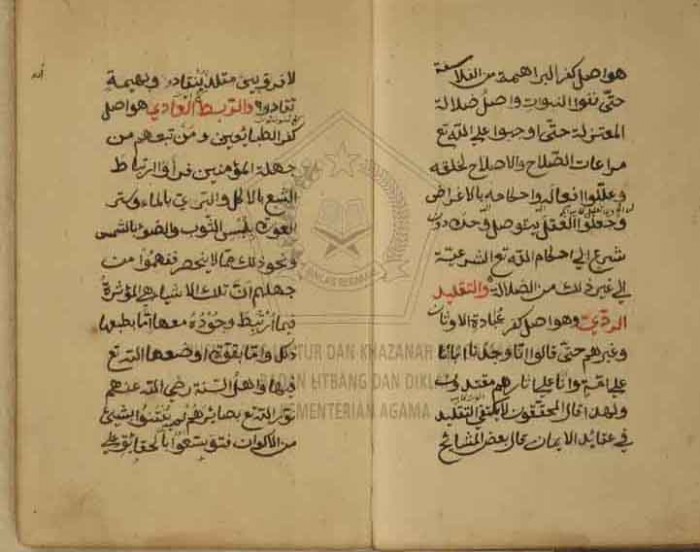 هو اصل كفر البراهمة من الفلاسفة
حتى نفوا النبوات واصل ضلالة
المعتزلة حتى اوجبوا على الله تع
مراعات الصلاح والاصلاح لخلقه
وعللوا افعاله واحكامه بالاغراض
وجعلوا العقل يتوصل وحده دون
شرع الى احكام الله تع الشرعية
الى غير ذلك من الضلالة والتقليد
الردي وهو اصل كفر عبادة الاوثان
وغيرهم حتى قالوا انا وجدنا اباءنا
على امة وانا على اثارهم مقتدون
ولهذا قال المحققون لا يكتفى التقليد
في عقائد الايمان قال بعض المشائخ
لا فرق بين مقلد ينقاد وبهيمة
تقاد والربط العادي هو اصل
كفر الطبائعين ومن تبعهم من
جهلة المؤمنين فراؤا ارتباط
الشبع بالاكل والري بالماء وستر
العورة بلبس الثوب والضوء بالشمس
ونحو ذلك مما لا ينحصر ففهموا من
جهلهم ان تلك الاشياء هي المؤثرة
فيما ارتبط وجوده معها اما بطبعها
ذلك واما بقوة اوضعها الله تع
فيها واهل السنة رضي الله عنهم
نور الله تع بصائرهم لم يفتنوا بشيء
من الاكوان فتوسعوا بالحقائق على
BADAN LITBANG DAN DIKLAT
KEMENTERIAN AGAMA